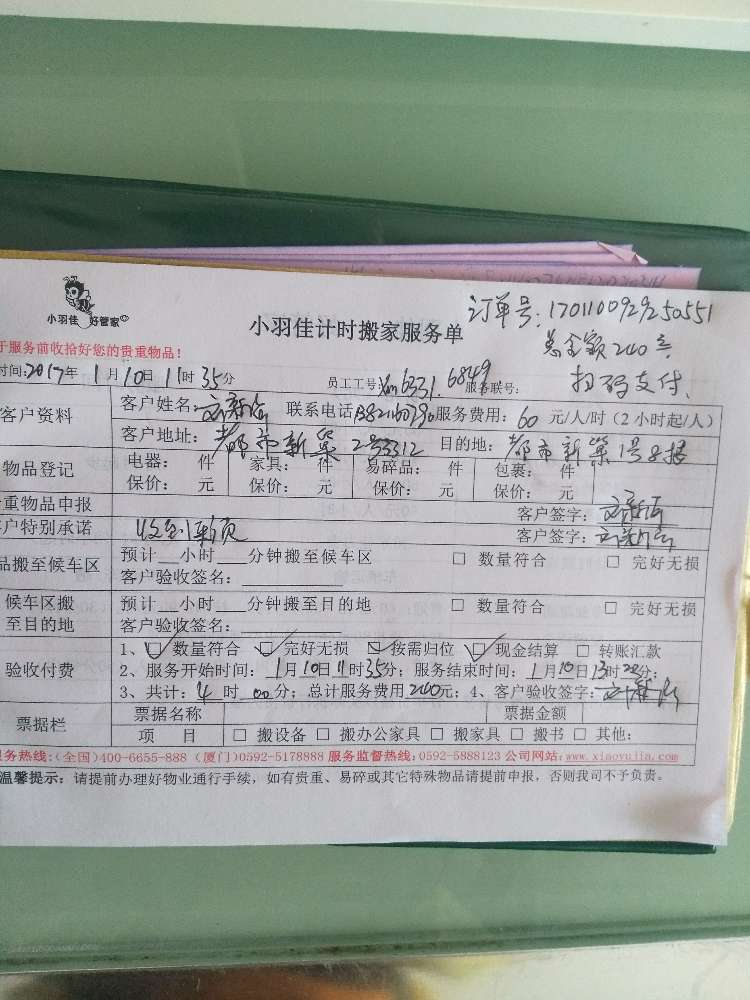 小羽佳 好管家
小羽佳计时搬家服务单
订单号:1701100929250551
总金额240元
扫码支付.
于服务前收拾好您的贵重物品!
时间:2017年1月10日11时35分 员工工号:Xm6331.6849 服务联号:
客户资料
客户姓名: 联系电话 服务费用:60元/人/时(2小时起/人)
客户地址:都市新巢 目的地:都市新巢1号8楼
物品登记
电器: 件 家具: 件 易碎品: 件 包裹: 件
保价: 元 保价: 元 保价: 元 保价: 元
重物品申报 客户签字:
户特别承诺 客户签字:
品搬至候车区
预计__小时___分钟搬至候车区 □ 数量符合 □ 完好无损
客户验收签名:
候车区搬至目的地
预计__小时___分钟搬至目的地 □ 数量符合 □ 完好无损
客户验收签名:
验收付费
1、☑数量符合 ☑完好无损 ☑按需归位 ☑现金结算 □ 转账汇款
2、服务开始时间:1月10日11时35分;服务结束时间:1月10日13时
3、共计:4时00分;总计服务费用240元;4、客户验收签字:
票据栏
票据名称 票据金额
项 目 □ 搬设备 □ 搬办公家具 □ 搬家具 □ 搬书 □ 其他:
服务热线:(全国)400-6655-888 (厦门)0592-5178888 服务监督热线:0592-5888123 公司网站:www.xiaoyujia.com
温馨提示:请提前办理好物业通行手续,如有贵重、易碎或其它特殊物品请提前申报,否则我司不予负责。